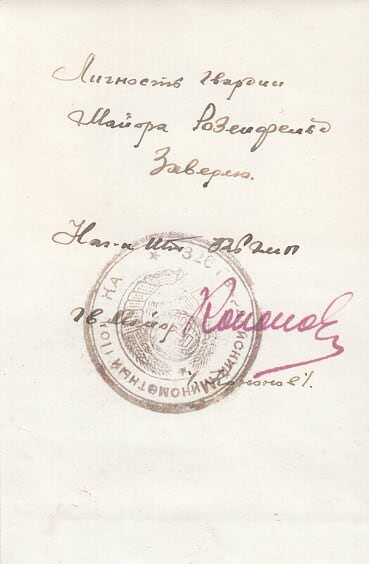 Личность Гвардии
Майора Розенфельд
Заверяю.
Нач-к Шт.
Гв. Майор Кононов
/Кононов/.
МИНОМЕТНЫЙ ПОЛК